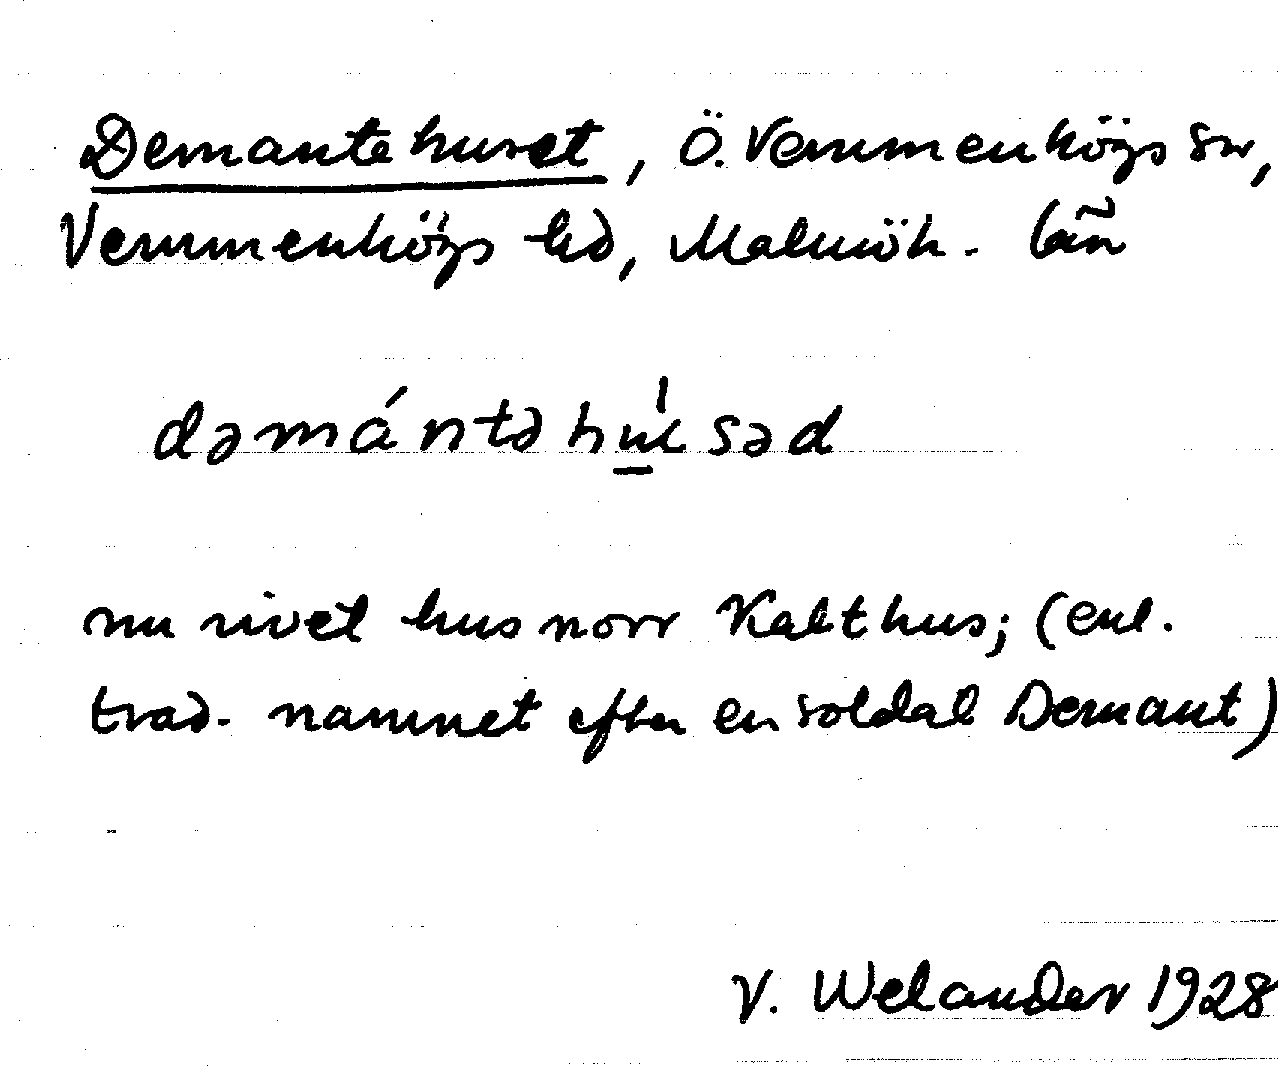 Demantehuset, Ö. Vemmenhögs sn,
Vemmenhögs hd, Malmöh. län
dəmántəhu̠̍səd
nu rivet hus norr Kalthus; (enl.
trad. namnet efter en soldat Demant)
V. Welander 1928